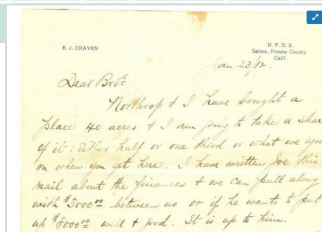 E. J. CRAVEN
R. F. D. 2.
Selma, Fresno County
Calif.
Jan 23/12.
Dear Bro:
Northrop & I have bought a
place 40 acres & I am going to take a share
of it. Either half or one third or what we agree
on when you get here. I have written Joe this
mail about the finances & we can pull along
with $3000.00 between us or if he wants to put
up $5000.00 well & good. It is up to him.